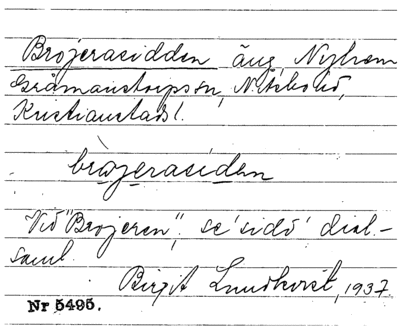 Brojerasidden äng, Nyhem
Gråmanstorps sn, N. Åsbo hd,
Kristianstads l.
bròjerasìden
Vid "Brojeren", se 'sidd' dial-
saml.
Birgit Lundkvist, 1937.
Nr 5495.